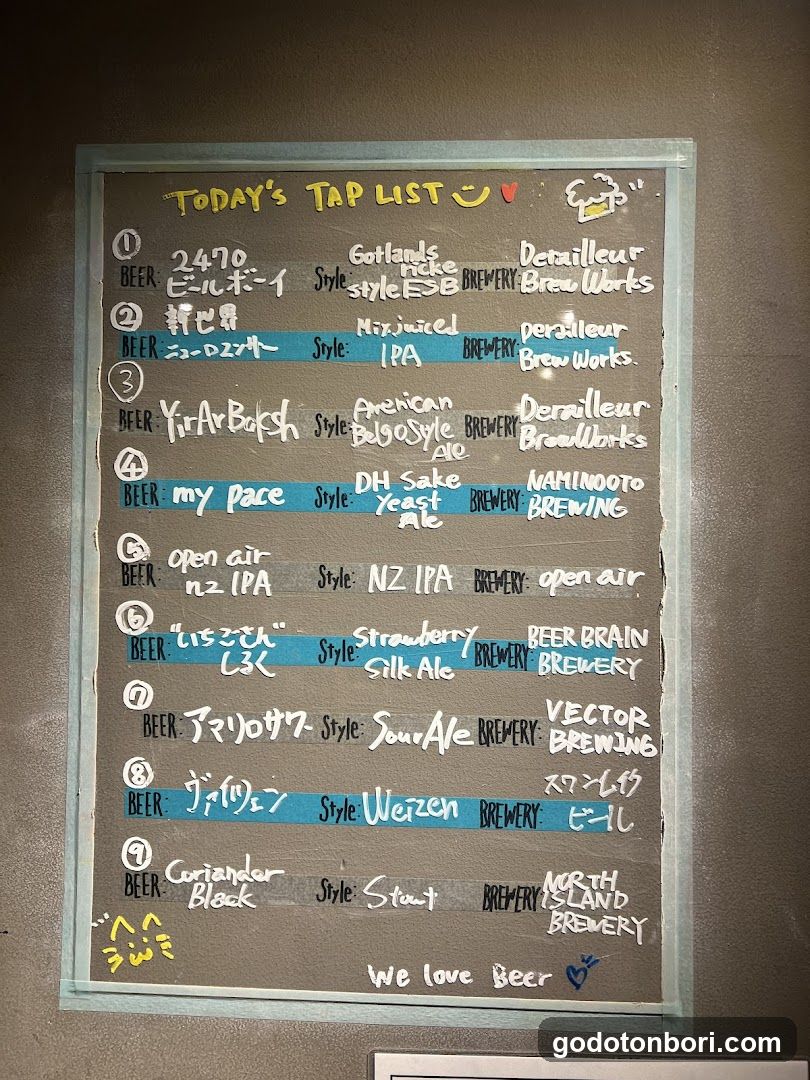 TODAY'S TAP LIST
①
BEER: 2470 ビールボーイ Style: Gotlands ricke style ESB BREWERY: Derailleur Brew Works
②
BEER: 新世界 ニューロマンサー Style: Mix juiced IPA BREWERY: Derailleur Brew Works.
③
BEER: YirArBaksh Style: American Belgo Style Ale BREWERY: Derailleur Brew Works
④
BEER: my pace Style: DH Sake Yeast Ale BREWERY: NAMINOOTO BREWING
⑤
BEER: open air nz IPA Style: NZ IPA BREWERY: open air
⑥
BEER: "いちごさん" しるく Style: Strawberry Silk Ale BREWERY: BEER BRAIN BREWERY
⑦
BEER: アマリロサワー Style: Sour Ale BREWERY: VECTOR BREWING
⑧
BEER: ヴァイツェン Style: Weizen BREWERY: スワンレイク ビール
⑨
BEER: Coriander Black Style: Stout BREWERY: NORTH ISLAND BREWERY
We love Beer
godotonbori.com